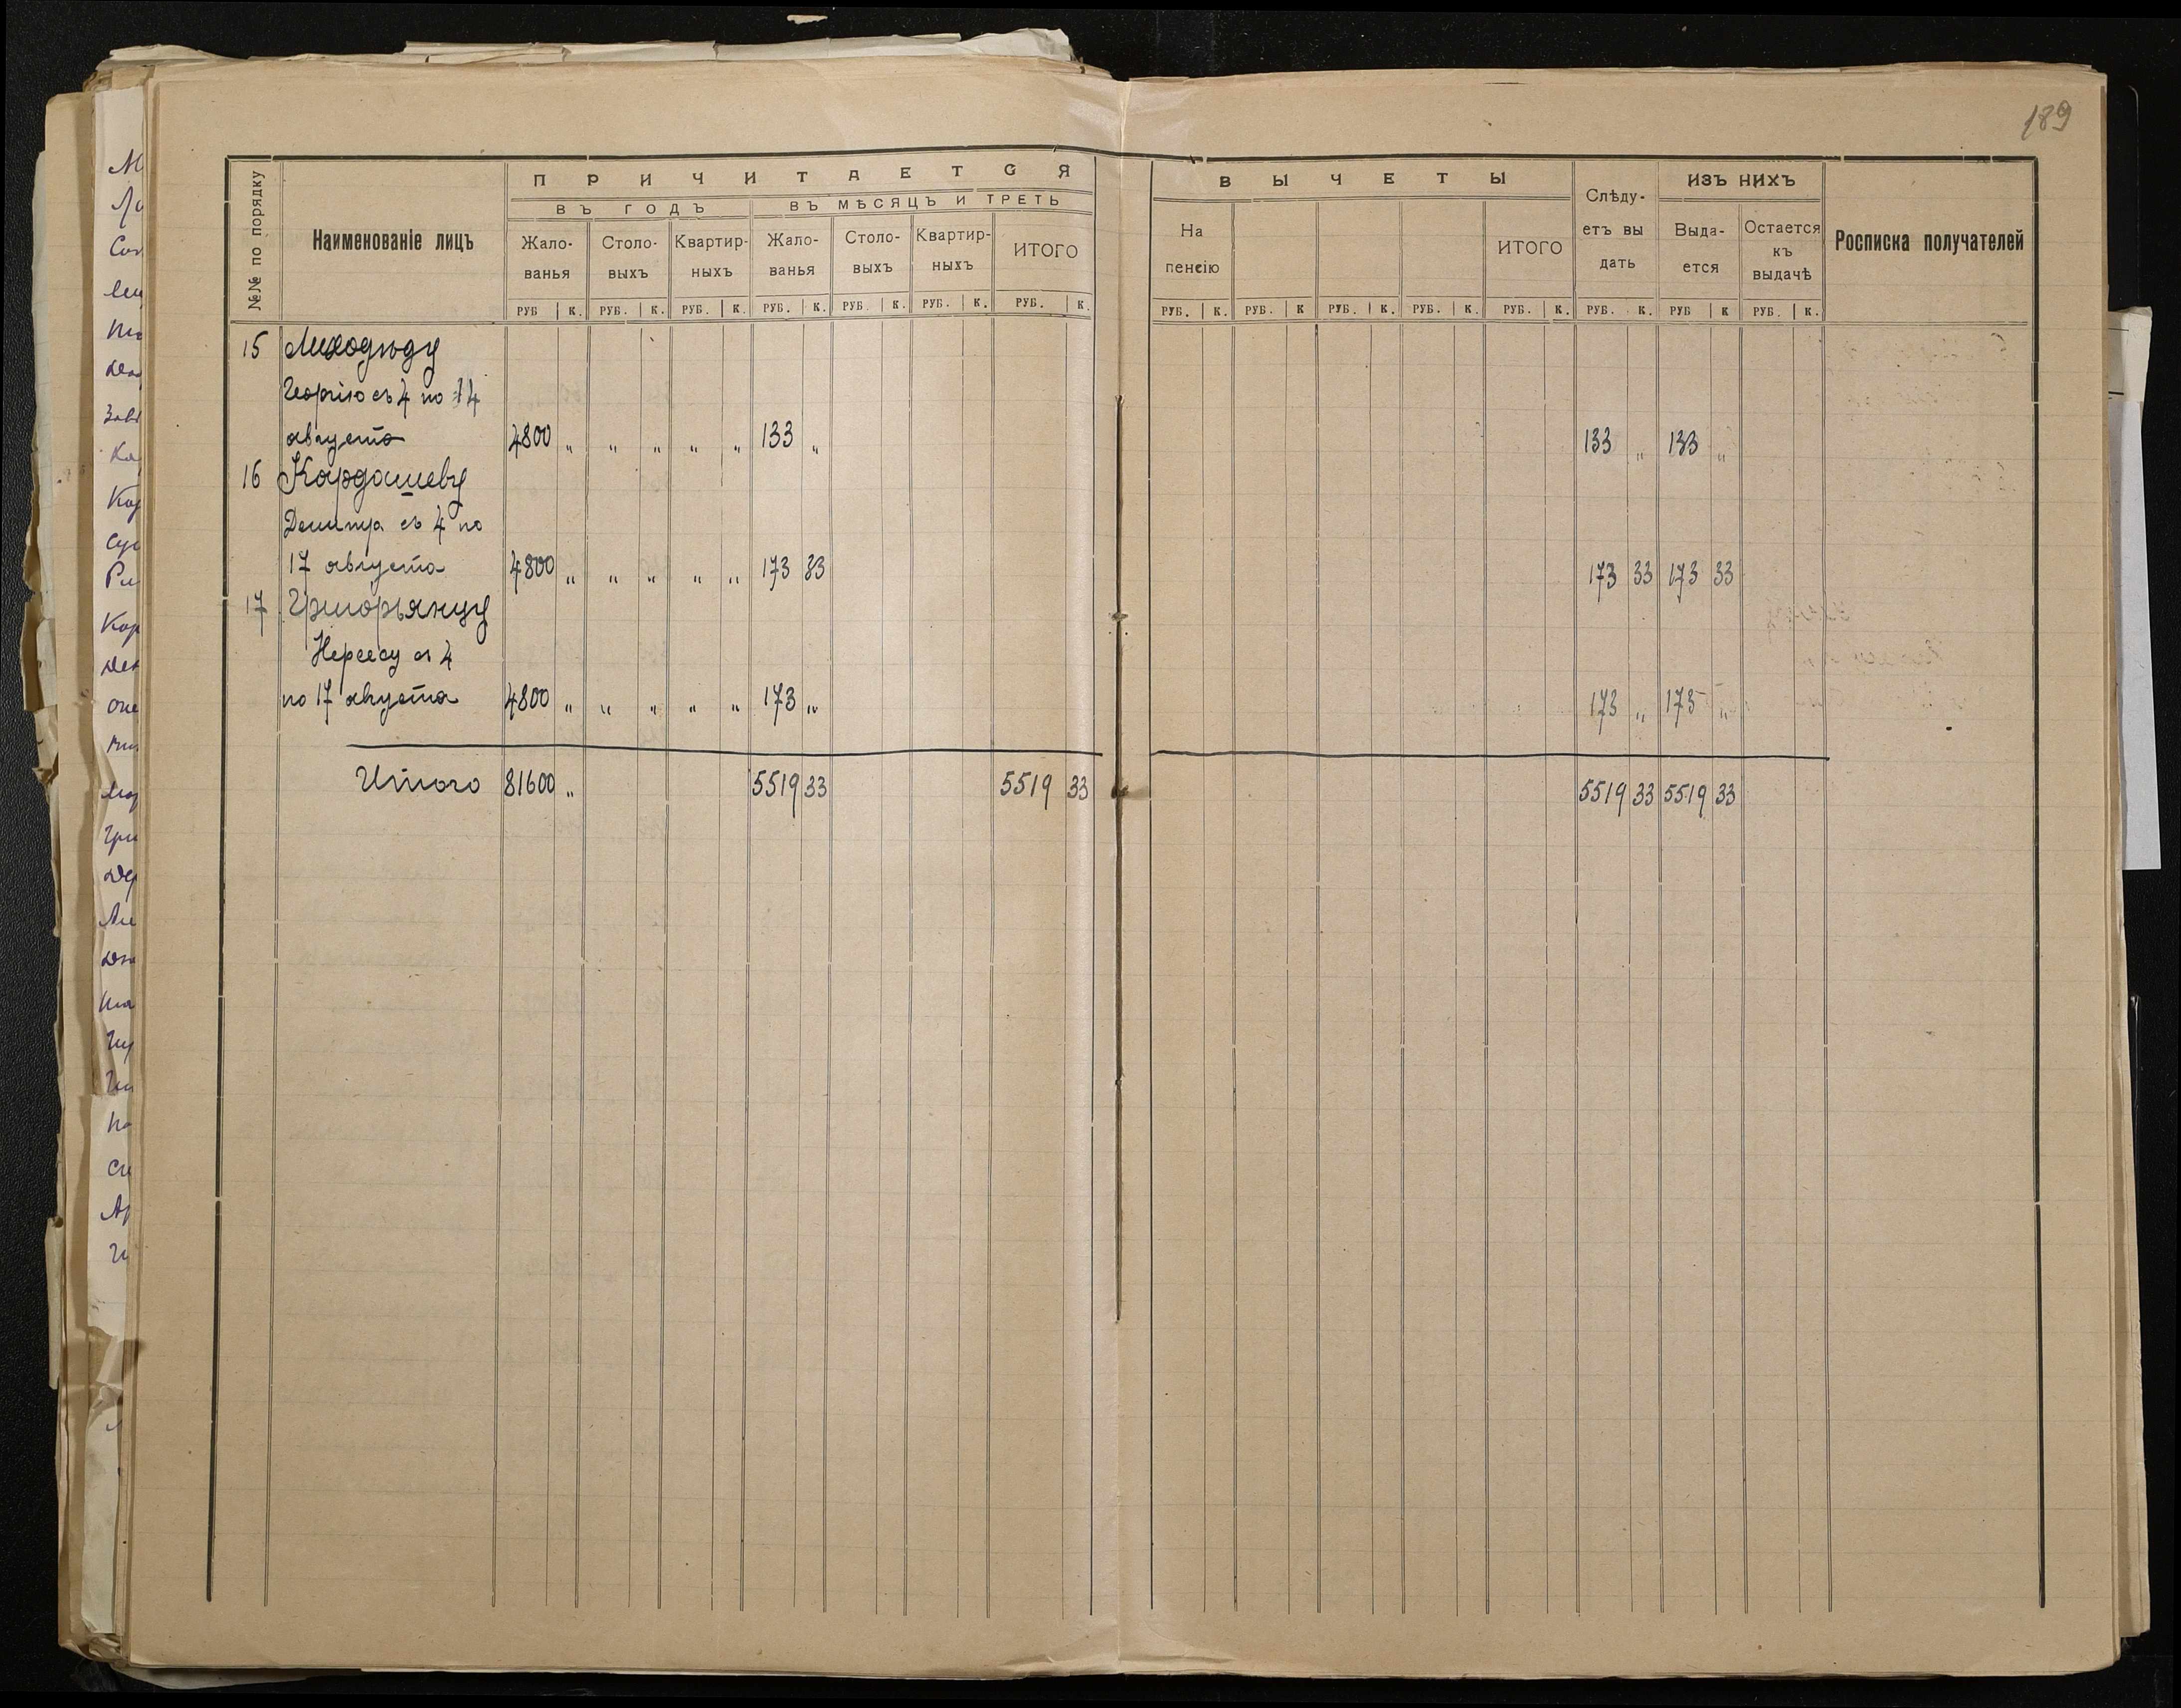 189
№№ по порядку
Наименованіе лицъ
ПРИЧИТАЕТСЯ
ВЪ ГОДЪ
ВЪ МѢСЯЦЪ И ТРЕТЬ
Жало-
ванья
Столо-
выхъ
Квартир-
ныхъ
Жало-
ванья
Столо-
выхъ
Квартир-
ныхъ
ИТОГО
РУБ К. РУБ. К. РУБ. К. РУБ. К. РУБ. К. РУБ. К. РУБ. К.
ВЫЧЕТЫ
На
пенсію
ИТОГО
Слѣду-
етъ вы
дать
ИЗЪ НИХЪ
Выда-
ется
Остается
къ
выдачѣ
Росписка получателей
РУБ. К. РУБ. К РУБ. К. РУБ. К. РУБ. К. РУБ. К. РУБ К РУБ. К.
15 Лиходѣду
Георгію съ 4 по 14
августа 4800 „ „ „ „ „ 133 „ 133 „ 133 „
16 Кардашеву
съ 4 по
17 августа 4800 „ „ „ „ „ 173 33 173 33 173 33
17 Григорьянцу
Нерсесу съ 4
по 17 августа 4800 „ „ „ „ „ 173 „ 173 „ 173 „
Итого 81600 „ 5519 33 5519 33 5519 33 5519 33